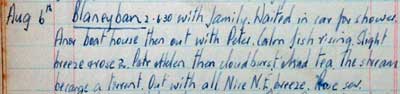 Aug 6th Blaneyban 2-6.30 with family. Waited in car for shower.
boat house then out with Peter. Calm fish rising. Slight
breeze arose 2. then cloudburst had tea the stream
became a torrent. Out with all. Nice N.E. breeze. Rose sev.